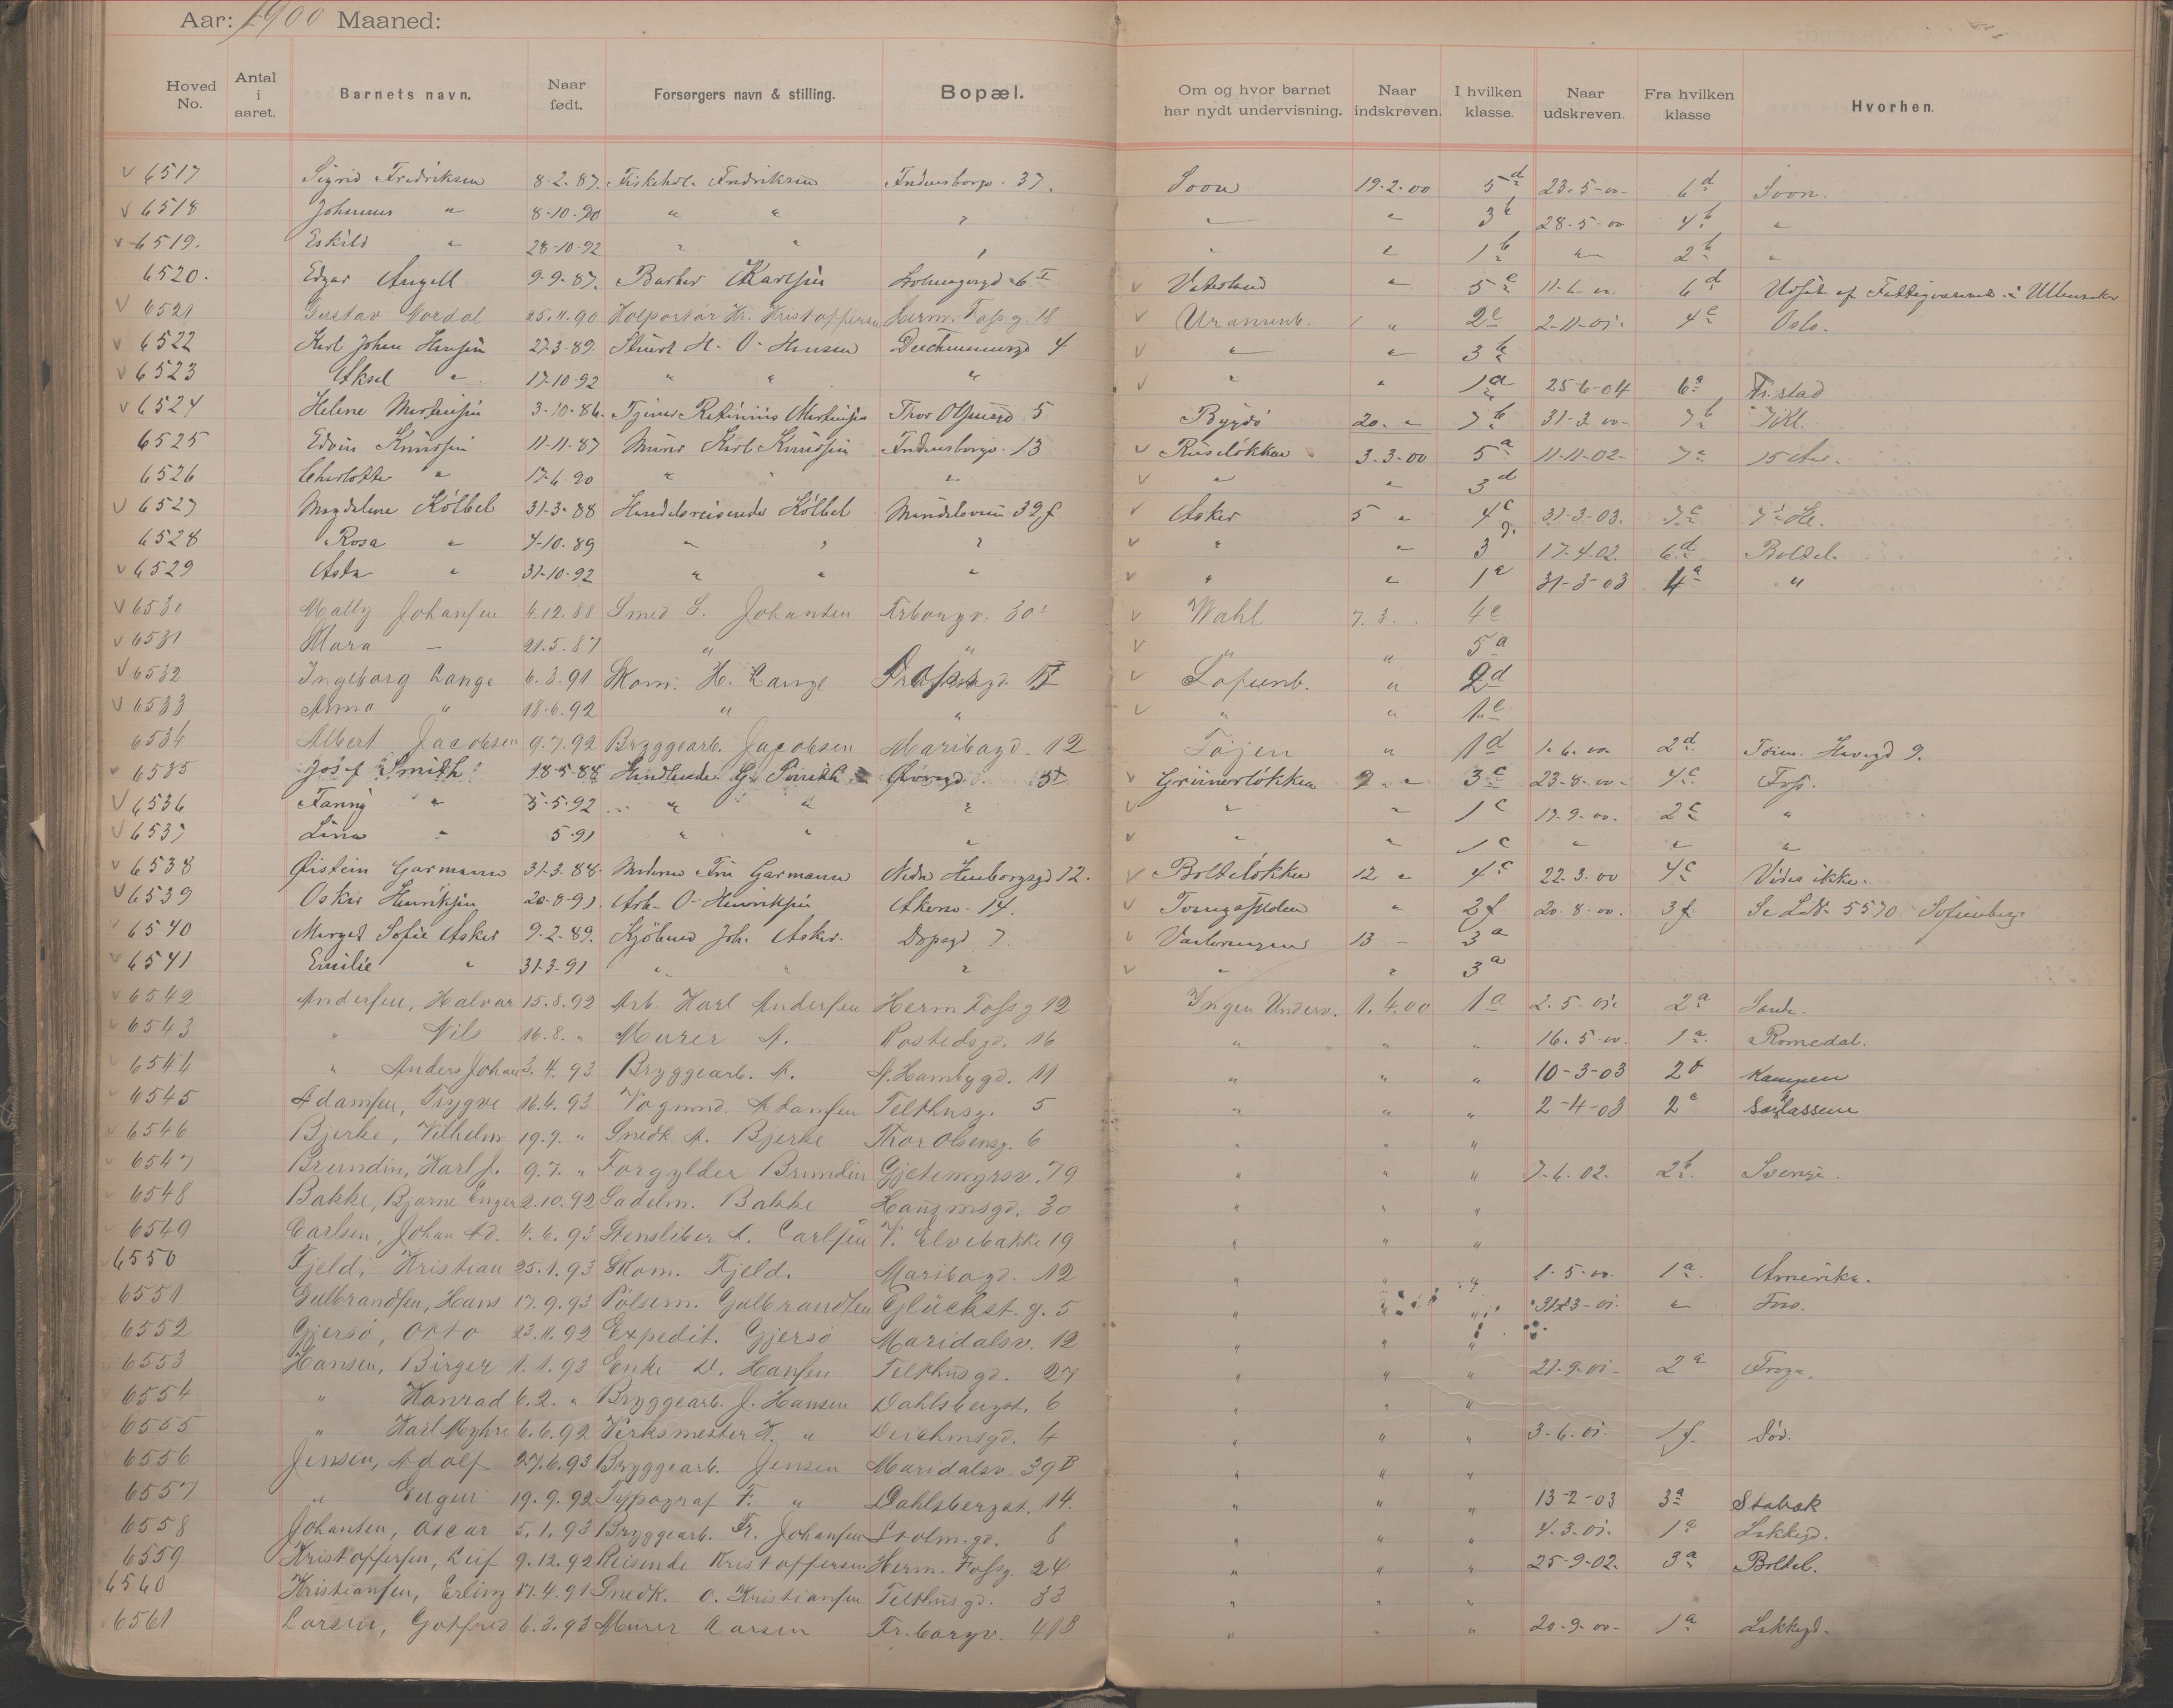 Aar: 1900 Maaned:
Hoved No. Antal i aaret. Barnets navn. Naar født. Forsørgers navn & stilling. Bopæl. Om og hvor barnet har nydt undervisning. Naar indskreven. I hvilken klasse. Naar udskreven. Fra hvilken klasse Hvorhen.
6517 Sigrid Fredriksen 8-2-87. Fredriksen 37. Soon 19-2-00 5d 23-5-00 6d Soon.
6518 Johannes " 8-10-90 " " " " " 3b 28-5-00 4b "
6519. Eskild " 28-10-92 " " " " " 1b " 2b "
6520. Edgar Angell 9-9-87. Barber Karlsen 6 I Vaterland " 5e 11-6-00 6d af Fattigvæsenet
6521 Gustav Nordal 25.11.90 Kolportør Kr. Kristoffersen Herm. Fossg. 18 Uranienb. 1 " 2e 2-11-01. 4c Oslo.
6522 Karl Johan Hansen 27-3-89. H. O. Hansen 4 " " 3b
6523 Aksel " 17-10-92 " " " " " 1a 25-6-04 6a Fr.stad
6524 Helene Martinsen 3-10-86. Martinsen Thor Olsensgd 5 Bygdø 20. " 7b 31-3-00 7b
6525 Edvin Knudsen 11-11-87 Murer Karl Knudsen 13 Ruseløkken 3-3-00 5a 11-11-02- 7a 15 Aar.
6526 Charlotte " 17-6-90 " " " " " 3d
6527 Magdalene Kölbel 31-3-88 Handelsreisende Kölbel 39f Asker 5 " 4c 31-3-03. 7c
6528 Rosa " 4-10-89 " " " " " 3 17-4-02. 6d Boltel.
6529 Asta " 31-10-92 " " " " " 1e 31-3-03 4a "
6530 Mally Johansen 4.12.88 Smed S. Johansen 30 Wahl 7.3. 4e
6531 Mara — 21.5.87 " " " " 5a
6532 Ingeborg Lange 6.3.91 Skom. H. Lange Sofienb. " 2d
6533 Anna " 18.6.92 " " " " 1e
6534 Albert Jacobsen 9.7.92 Bryggearb. Jacobsen Maribogd. 12 Tøjen " 1d 1-6-00 2d 9.
6535 Josef Smith 18-5-88 G. Smith Grünerløkken 9 " 3c 23-8-00- 4c Foss.
6536 Fanny " 5-5-92 " " " " " 1c 17-9-00. 2c "
6537 Lina " 5-91 " " " " " 1c " " "
6538 Øistein Garmann 31-3-88. Fru Garmann Nedre 12. Bolteløkken 12 " 4c 22-3-00 4c Vides ikke.
6539 Oskar Henriksen 20-8-91. Arb. O. Henriksen Akersv. 14. " 2f 20-8-00. 3f Se 5570 Sofienberg
6540 Margit Sofie Asker 9-2-89. Kjøbmd Joh. Asker. Dopsgd 7. 13 - 3a
6541 Emilie " 31-3-91 " " " " " 3a
6542 Andersen, Halvar 15.8.92 Arb. Karl Andersen Herm Fossg 12 Ingen Underv. 1.4.00 1a 2-5-01. 2a
6543 " Nils 16.8. " Murer A. 16 " " " 16-5-00. 1a. Romedal.
6544 " Anders Johan 3.4.93 Bryggearb. A. 11 " " " 10-3-03 2b Kampen
6545 Adamsen, Trygve 16.4.93 Vognmd. Adamsen Telthusg. 5 " " " 2-4-03 2c
6546 Bjerke, Vilhelm 19.9. " Snedk. A. Bjerke Thor Olsensg. 6 " " "
6547 Brundin, Karl J. 9.7. " Forgylder Brundin Gjetemyrsv. 79 " " " 7-6-02. 2b. Sverige.
6548 Bakke, Bjarne Enger 2.10.92 Sadelm. Bakke Haugmsgd. 30 " " "
6549 Carlsen, Johan Ad. 4.6.93 Stensliber A. Carlsen V. Elvebakke 19 " " "
6550 Fjeld, Kristian 25.1.93 Skom. Fjeld. Maribogd. 12 " " " 1-5-00. 1a. Amerika.
6551 Gulbrandsen, Hans 17.9.93 Pølsem. Gulbrandsen Glückst.g. 5 " " " 3-01. " Foss.
6552 Gjersø, Otto 23.11.92 Expedit. Gjersø Maridalsv. 12 " " "
6553 Hansen, Birger 1.1.93 Enke D. Hansen Telthusgd. 27 " " " 21-9-01- 2a
6554 " Konrad 6.2. " Bryggearb. J. Hansen Dahlsbergst. 6 " " "
6555 " Karl Myhre 6.6.92 Verksmester K. " Deichmsgd. 4 " " " 3-6-01. 1f. Død.
6556 Jensen, Adolf 27.6.93 Bryggearb. Jensen Maridalsv. 39B " " "
6557 " Eugen 19.9.92 Typograf F. " Dahlsbergst. 14. " " " 13-2-03 3a Stabæk
6558 Johansen, Oscar 5.1.93 Bryggearb. Fr. Johansen Stolm.gd. 8 " " " 4-3-01. 1a Lakkegd.
6559 Kristoffersen, Leif 9.12.92 Reisende Kristoffersen Herm. Fossg. 24 " " " 25-9-02. 3a Boltel.
6560 Kristiansen, Erling 17.4.91 Snedk. O. Kristiansen Telthusgd. 33 " " "
6561 Larsen, Gotfred 6.3.93 Murer Larsen Fr.borgv. 41B " " " 20-9-00- 1a Lakkegd.